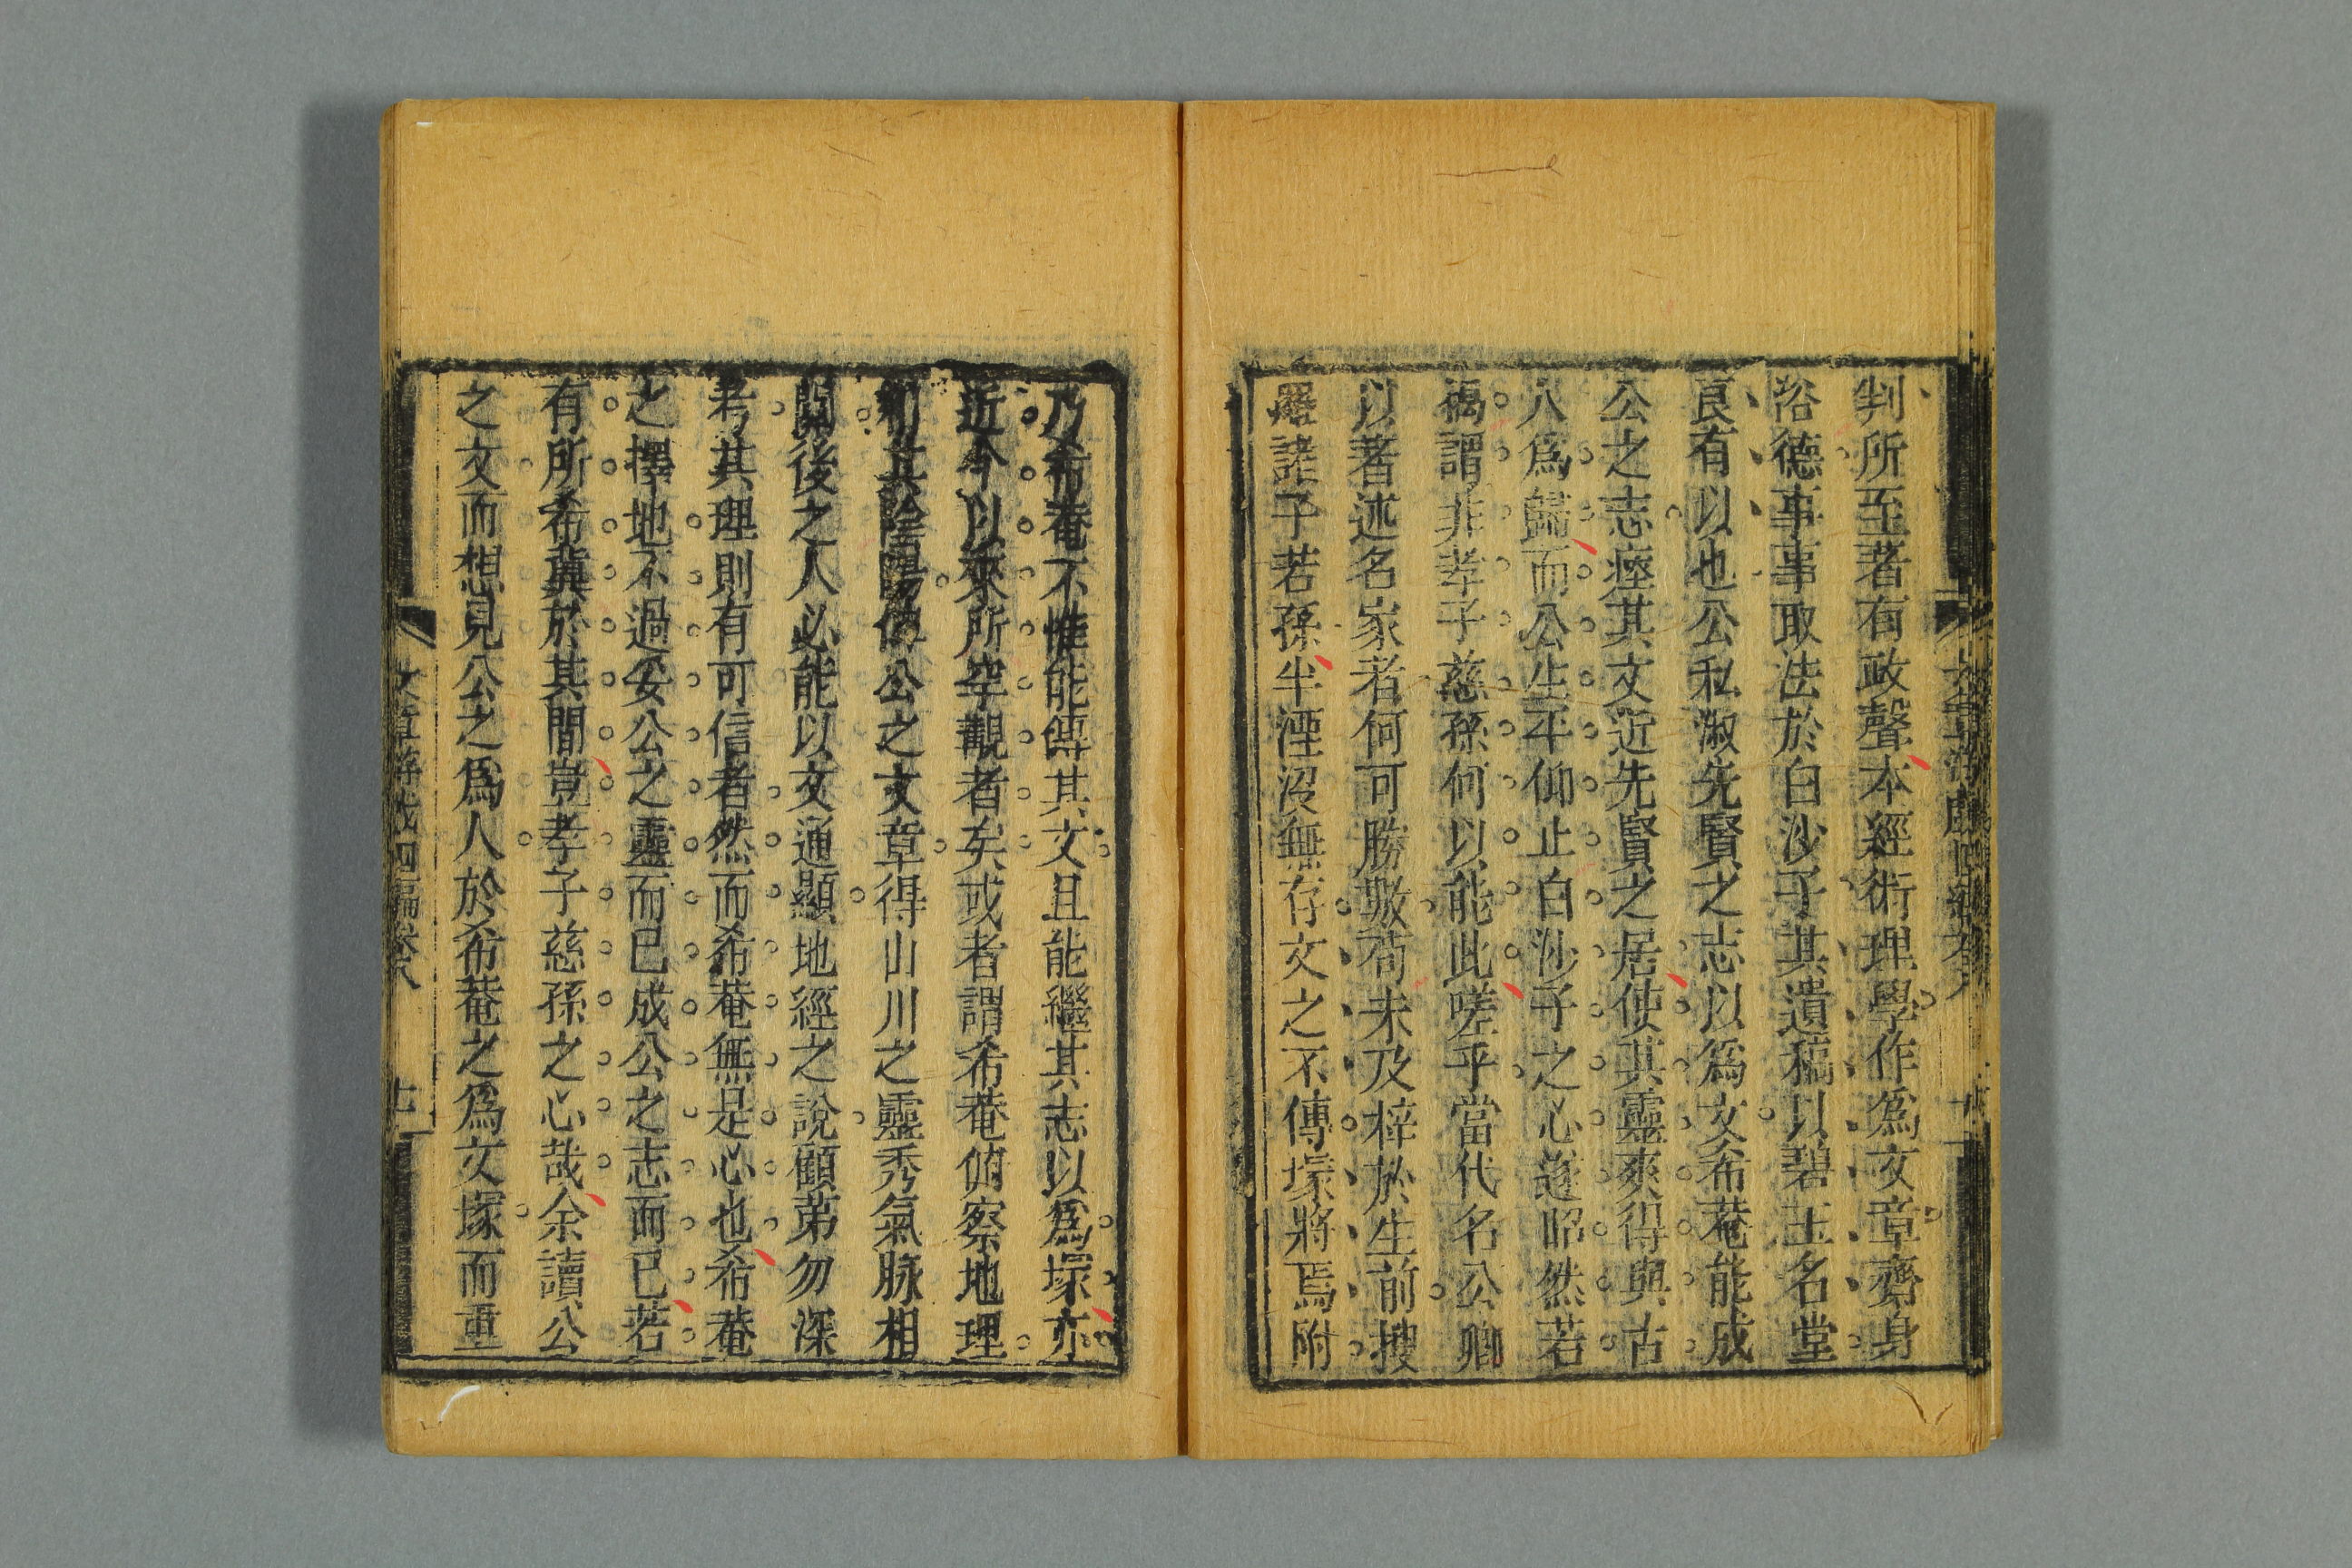 判所至著有政聲本經術理學作爲文章齋身
浴德事事取法於白沙子其遺稿以碧玉名堂
良有以也公私淑先賢之志以爲文希菴能成
公之志瘞其文近先賢之居使其靈爽得與古
人爲歸而公生平仰止白沙子之心遂昭然若
揭謂非孝子慈孫何以能此嗟乎當代名公卿
以著述名家者何可勝數苟未及梓於生前搜
羅諸子若孫半湮沒無存文之不傳塚將焉附
乃希菴不惟能傳其文且能繼其志以爲塚亦
近今以來所罕觀者矣或者謂希菴俯察地理
相其陰陽俾公之文章得山川之靈秀氣脉相
關後之人必能以文通顯地經之說顧弟勿深
考其理則有可信者然而希菴無是心也希菴
之擇地不過妥公之靈而已成公之志而已若
有所希冀於其間豈孝子慈孫之心哉余讀公
之文而想見公之爲人於希菴之爲文塚而重
文章游戲四編卷八